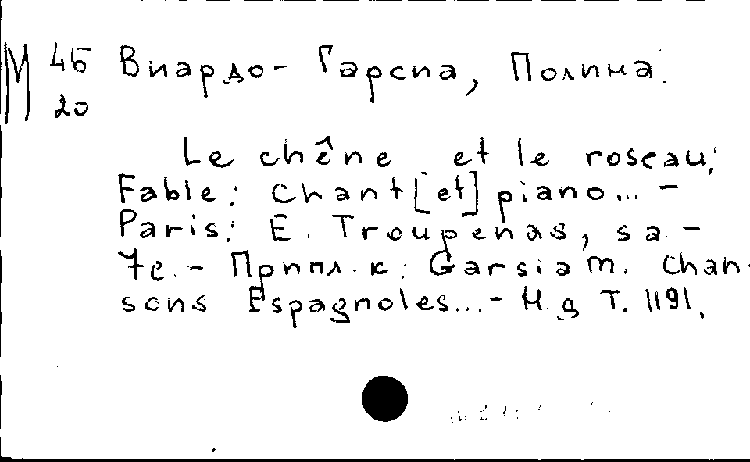 М 45 Виардо- Гарсиа, Полина.
20
Le chêne et le roseau;
Fable: Chant [et] piano... -
Paris: E. Troupenas, s.a. -
7c. - Припл. к: Garsia M. Chan-
sons Espagnoles... - Н.д T. 1191.